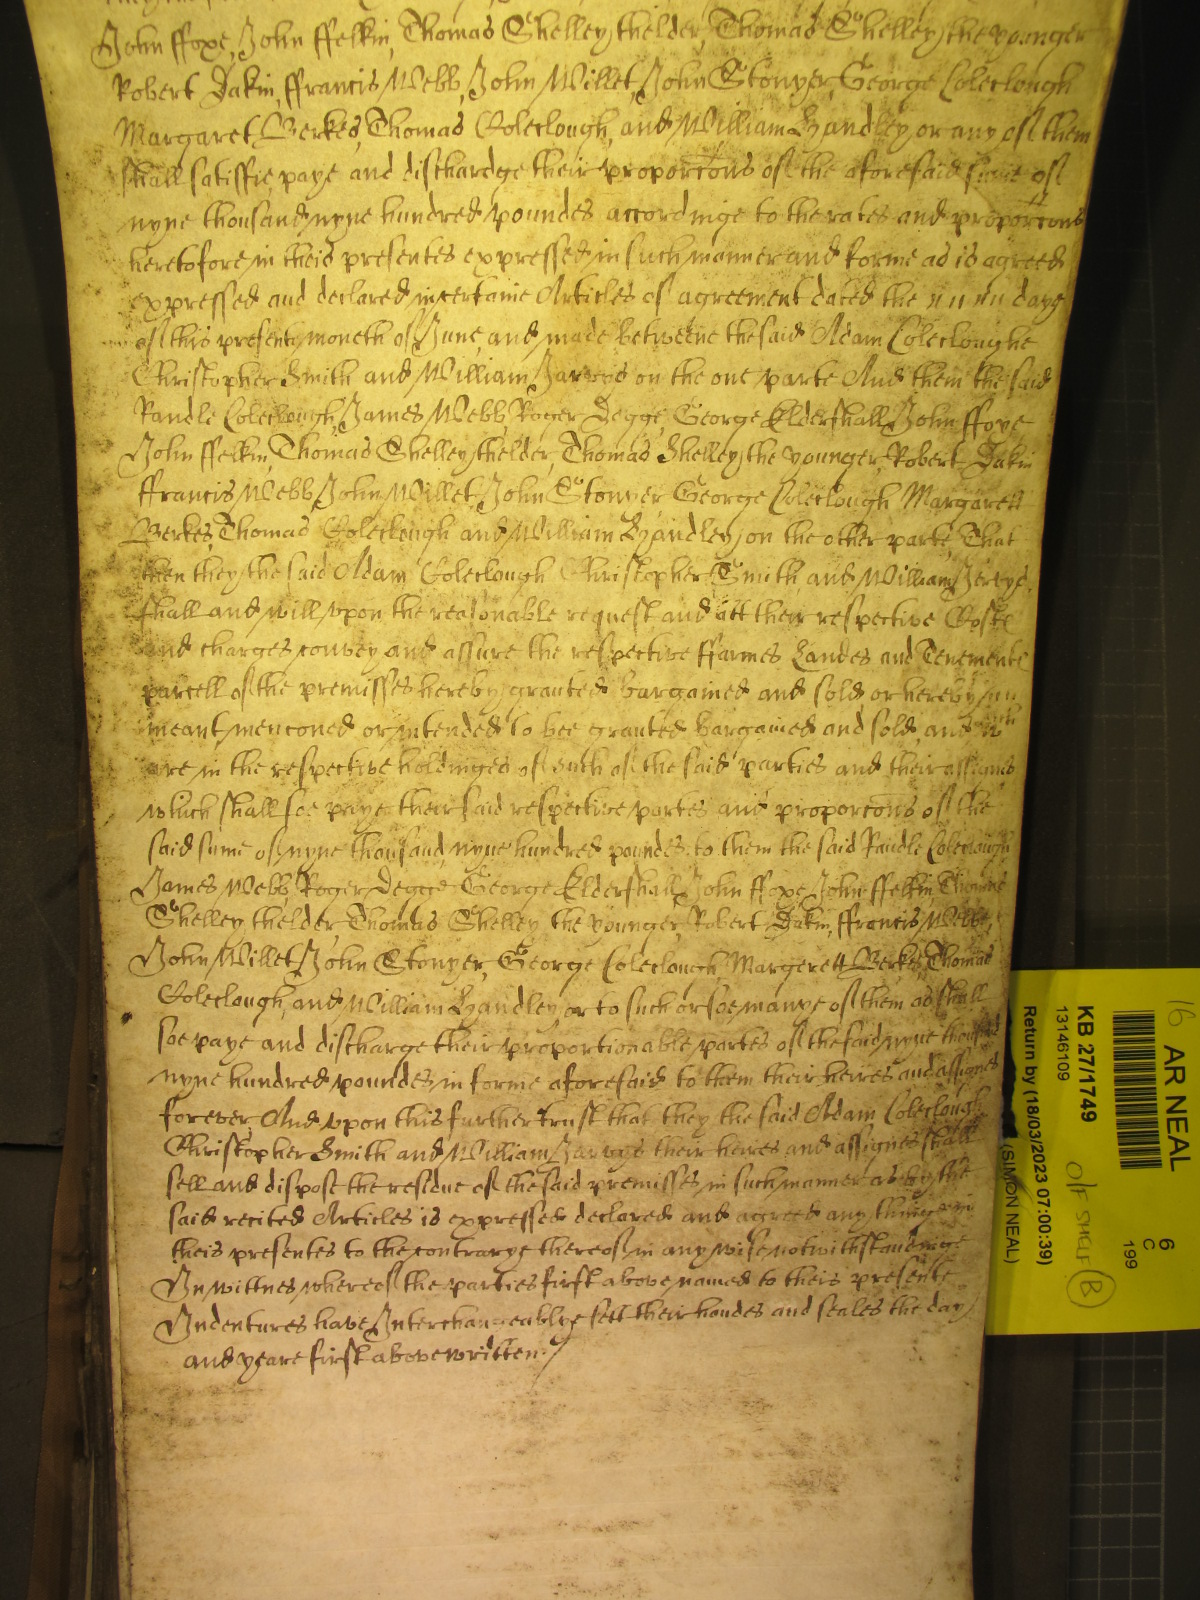 John ffoxe, John ffelkin, Thomas Shelley thelder, Thomas Shelley the younger
Robert Dakin, ffrancis Webb, John Willet, John Stonyer, George Coleclough
Margaret Berkes, Thomas Coleclough, and William Handley or any of them
shall satisfie paye and dischardge their proporcons of the aforesaid sume of
nyne thousand nyne hundred poundes accordinge to the rates and proporcons
heretofore in theis presentes expressed in such manner and forme as is agreed
expressed and declared in certaine Articles of agreement dated the daye
of this present moneth of June, and made betweene the said Adam Colecloughe
Christopher Smith and William Jarvys on the one parte And them the said
Randle Coleclough, James Webb, Roger Degge, George Eldershall, John ffoxe
John ffelkin, Thomas Shelley thelder, Thomas Shelley the younger, Robert Dakin
ffrancis Webb, John Willet, John Stonyer George Coleclough Margarett
Berkes, Thomas Coleclough and William Handley on the other parte, That
then they the said Adam Coleclough Christopher Smith and William Jervys
shall and will upon the reasonable request and att their respective Costes
and charges convey and assure the respective ffarmes Landes and Tenementes
parcell of the premisses hereby granted bargained and sold or hereby
meant menconed or intended to bee granted bargained and sold, and
are in the respective holdinges of such of the said parties and their assignes
which shall soe paye their said respective partes and proporcons of the
said sume of nyne thousand nyne hundred poundes to them the said Randle Coleclough
James Webb, Roger Degge George Eldershall, John ffoxe, John ffelkin, Thomas
Shelley thelder Thomas Shelley the younger, Robert Dakin, ffrancis Webb,
John Willet, John Stonyer, George Coleclough, Margerett Berkes, Thomas
Coleclough, and William Handley, or to such or soe manye of them as shall
soe paye and discharge their proportionable partes of the said nyne thousand
nyne hundred poundes, in forme aforesaid to them their heires and assignes
forever, And upon this further trust that they the said Adam Coleclough
Christopher Smith and William Jarvys their heires and assignes shall
sell and dispose the residue of the said premisses in such manner as by the
said recited Articles is expressed declared and agreed any thinge in
theis presentes to the contrarye thereof in any wise notwithstandinge
In wittnes whereof the parties first above named to theis presente
Indentures have Interchangeablye sett their handes and seales the day
and yeare first above written.
16 AR NEAL
6
C
199
KB 27/1749
13146109
O/F SHELF B
Return by (18/03/2023 07:00:39)
(SIMON NEAL)